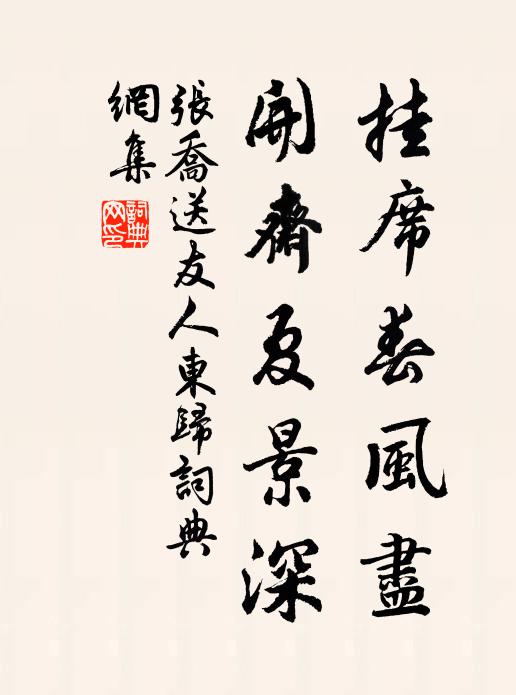 挂席春風盡
開齋夏景深
張喬送友人東歸詞典
網集
詞典
网印